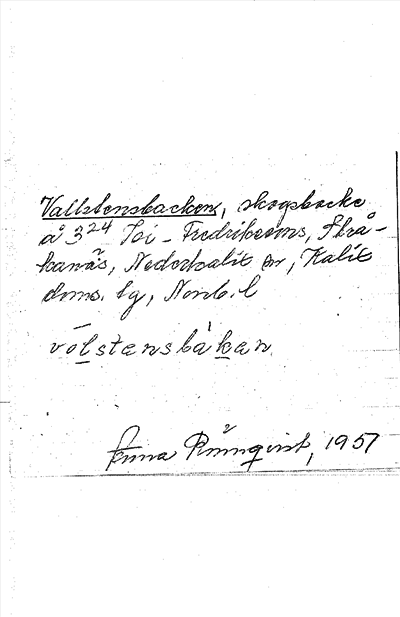 Vallstensbacken, skogsbacke
å 3²⁴ Toi - Fredriksons, Strå-
kanäs, Nederkalix sn, Kalix
doms. tg, Norrb. l
vo̅l̲stensbák̲en
Anna Rönnqvist, 1957